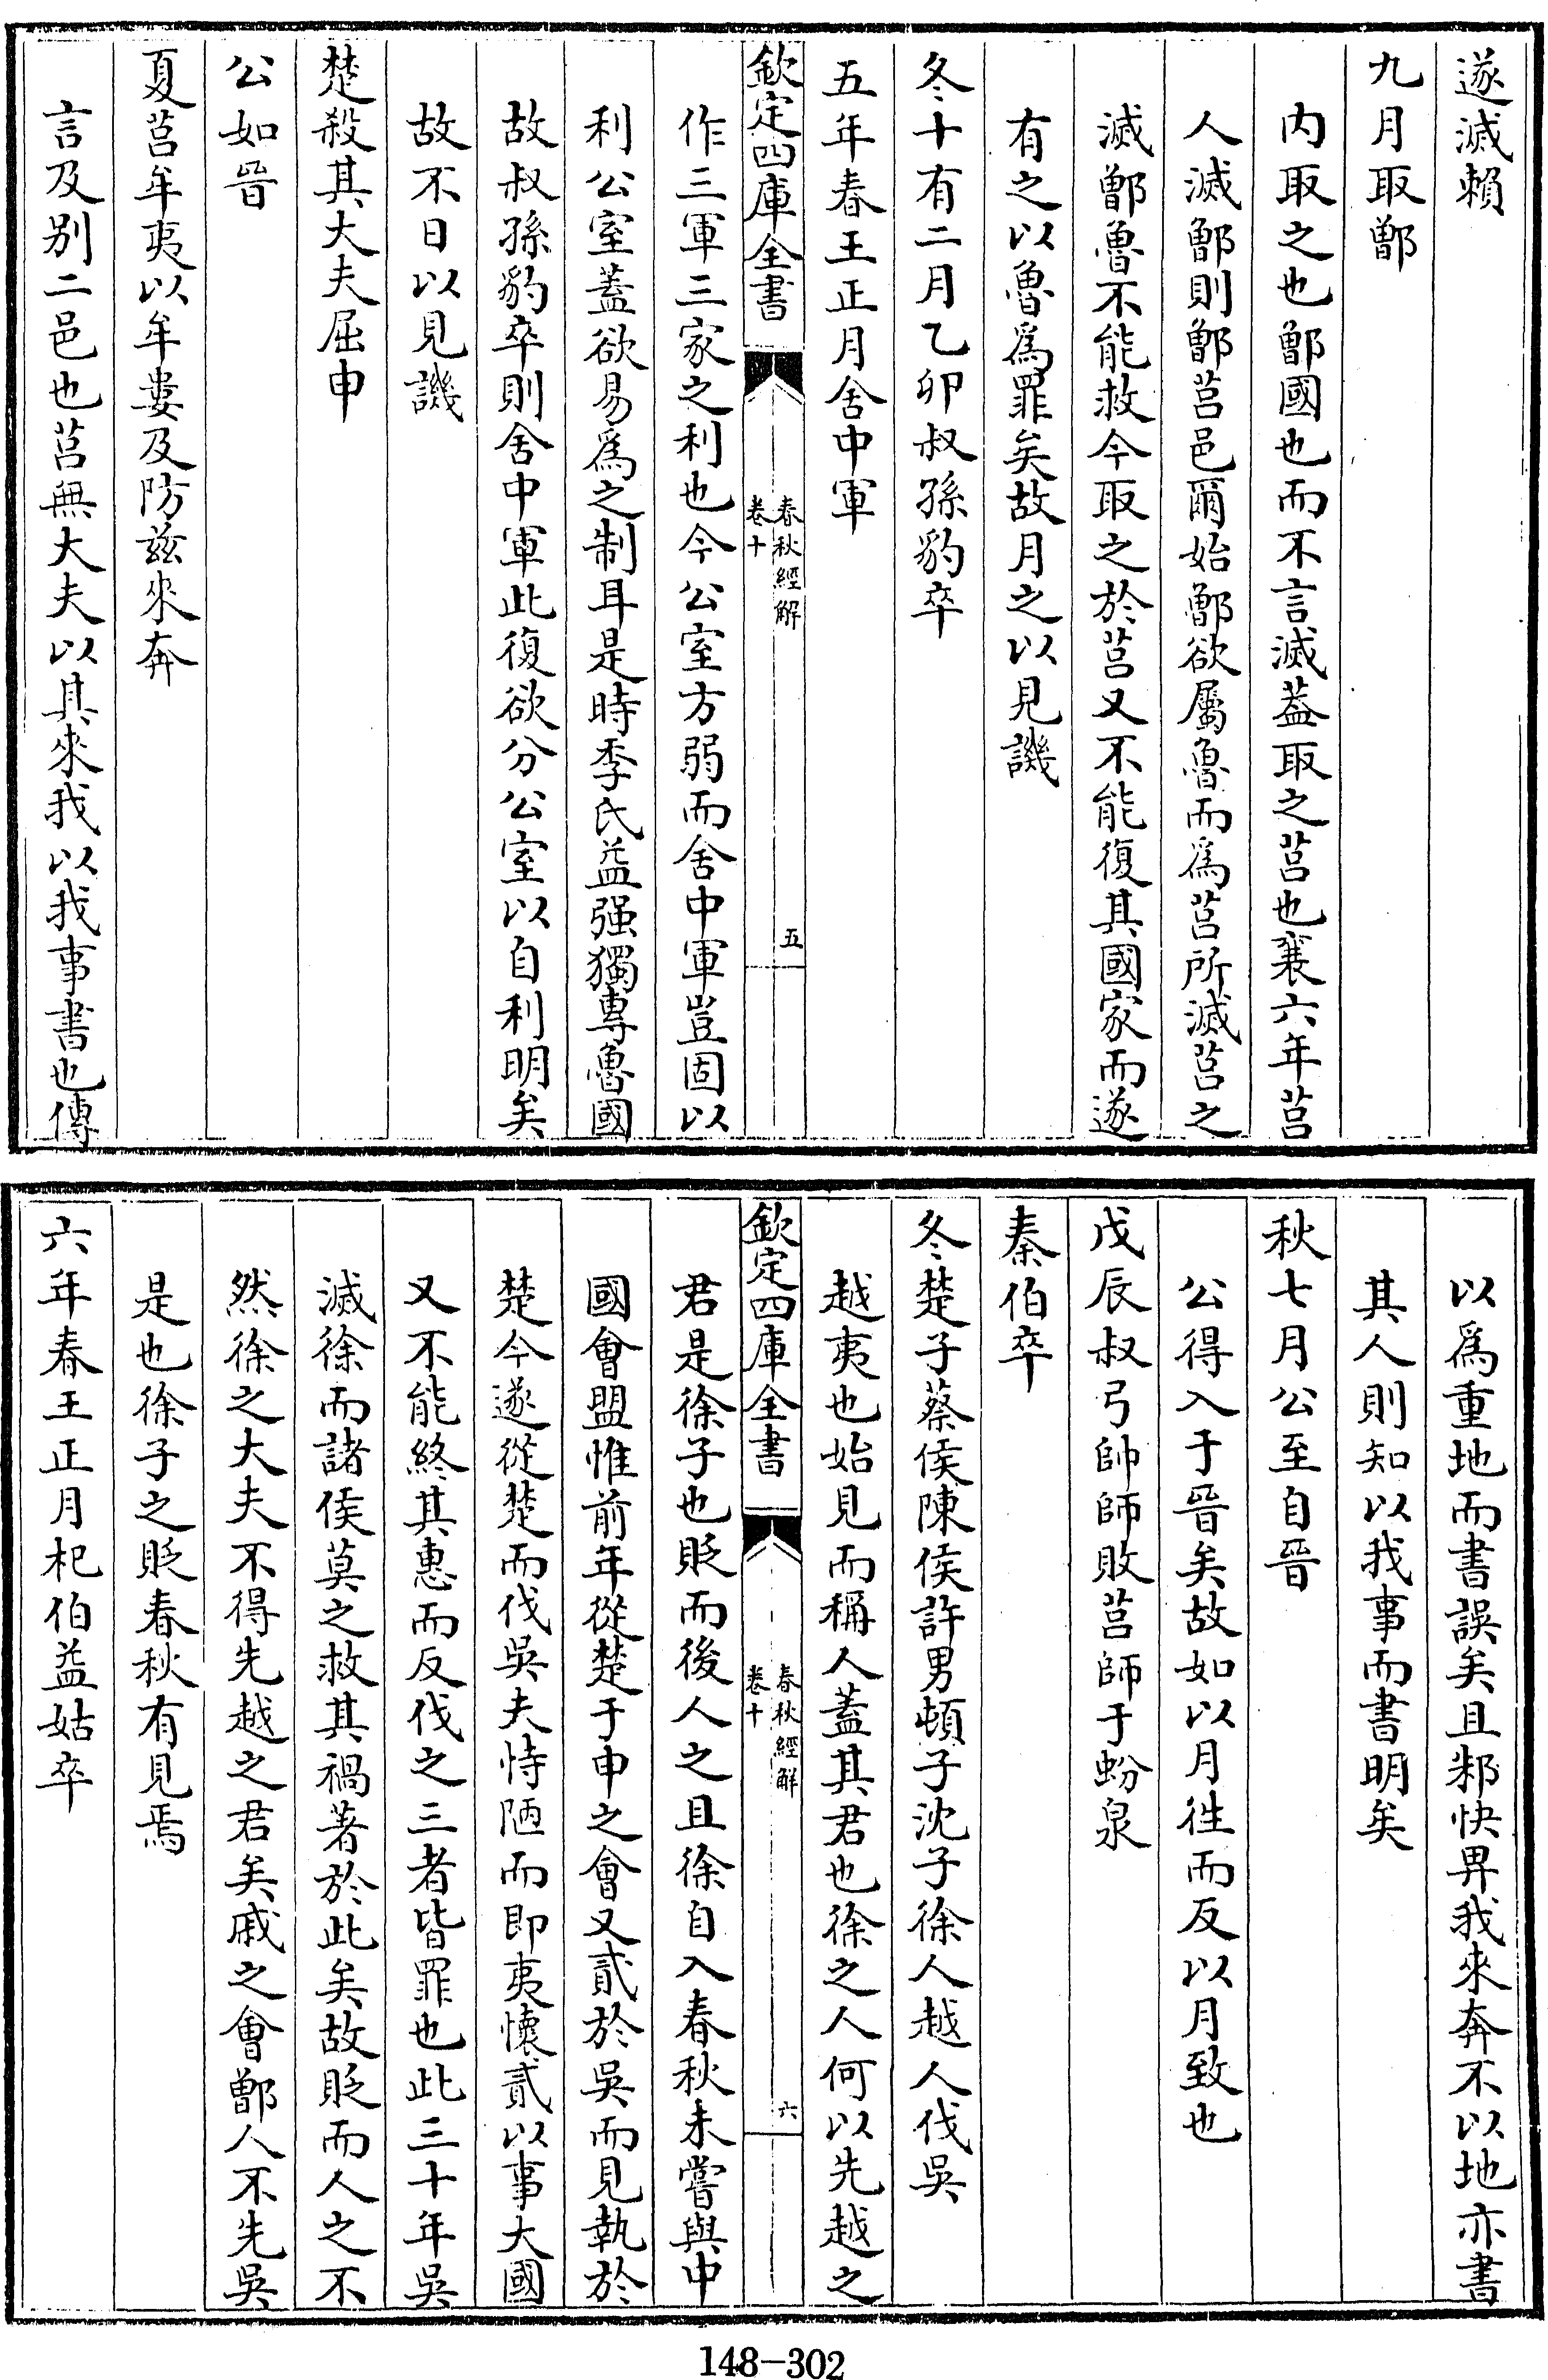 遂滅賴
九月取鄫
内取之也鄫國也而不言滅葢取之莒也襄六年莒
人滅鄫則鄫莒邑爾始鄫欲屬魯而為莒所滅莒之
滅鄫魯不能救今取之於莒又不能復其國家而遂
有之以魯為罪矣故月之以見譏
冬十有二月乙卯叔孫豹卒
五年春王正月舍中軍
欽定四庫全書
春秋經解
卷十
五
作三軍三家之利也今公室方弱而舍中軍豈固以
利公室蓋欲易為之制耳是時季氏益强獨專魯國
故叔孫豹卒則舍中軍此復欲分公室以自利明矣
故不日以見譏
楚殺其大夫屈申
公如晉
夏莒牟夷以牟婁及防兹來奔
言及别二邑也莒無大夫以其來我以我事書也傳
以為重地而書誤矣且邾快畀我來奔不以地亦書
其人則知以我事而書明矣
秋七月公至自晉
公得入于晉矣故如以月徃而反以月致也
戊辰叔弓帥師敗莒師于蚡泉
秦伯卒
冬楚子蔡侯陳侯許男頓子沈子徐人越人伐吳
越夷也始見而稱人蓋其君也徐之人何以先越之
欽定四庫全書
春秋經解
卷十
六
君是徐子也貶而後人之且徐自入春秋未嘗與中
國會盟惟前年從楚于申之會又貳於吳而見執於
楚今遂從楚而伐吳夫恃陋而即夷懷貳以事大國
又不能終其惠而反伐之三者皆罪也此三十年吳
滅徐而諸侯莫之救其禍著於此矣故貶而人之不
然徐之大夫不得先越之君矣戚之會鄫人不先吳
是也徐子之貶春秋有見焉
六年春王正月杞伯益姑卒
148-302